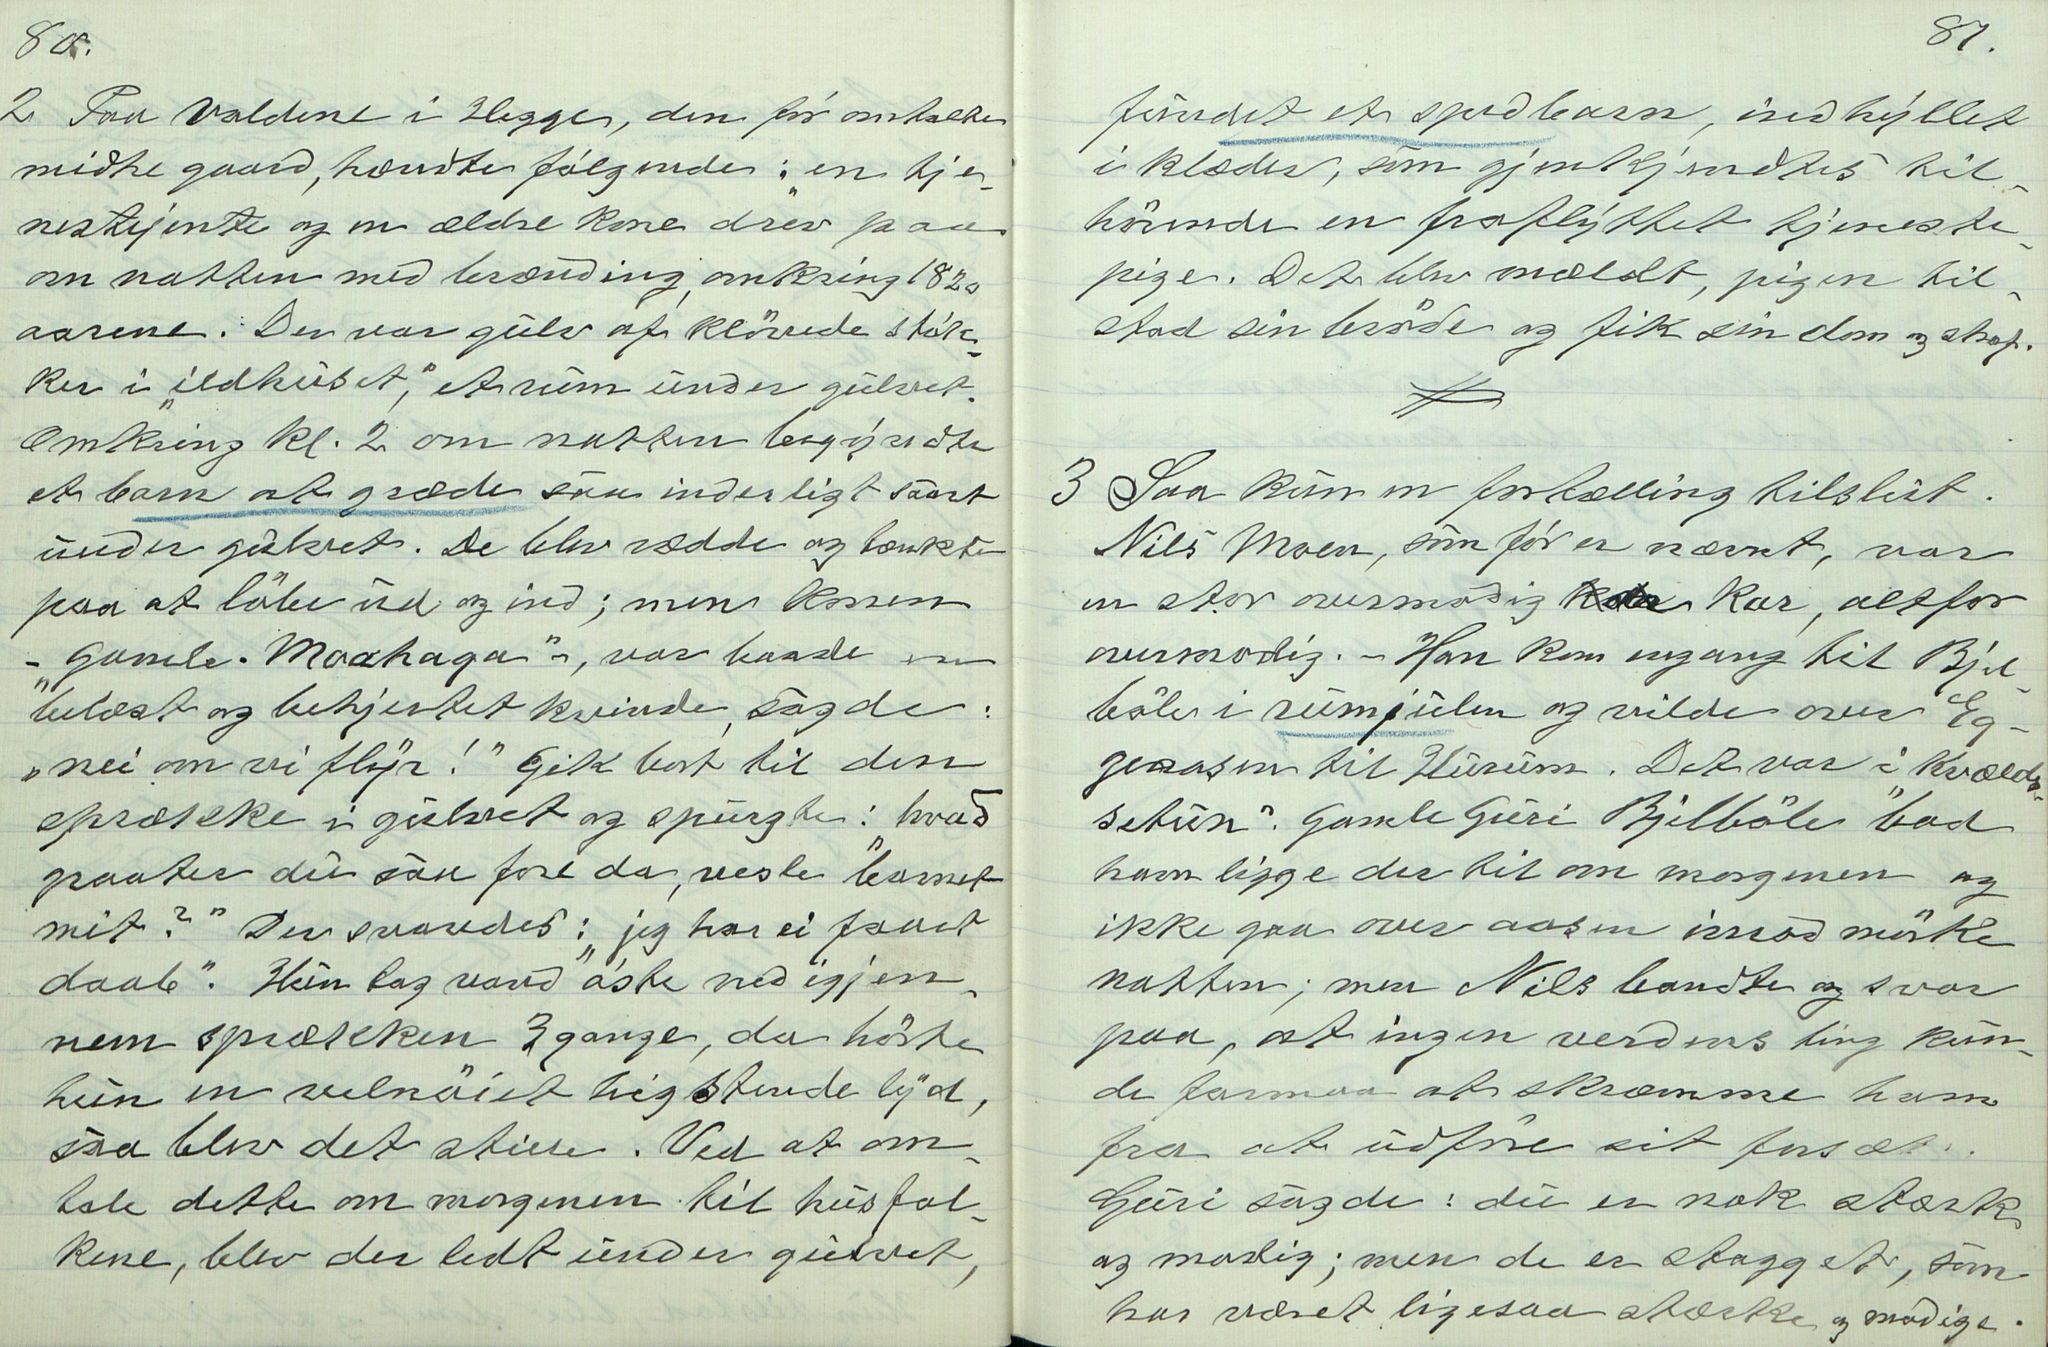 80.
2 Paa Voldene i Hegge, den før omtalte
midtre gaard, hændte følgende: en tje-
nestejente og en ældre kone drev paa
om natten med brænding, omkring 1820
aarene. Der var gulv af kløvede stok-
ker i „ildhuset," et rum under gulvet.
Omkring kl. 2 om natten begyndte
et barn at græde saa inderligt saart
under gulvet. De blev rædde og tænkte
paa at løbe ud og ind; men konen
- „Gamle-Moahaga" -, var baade en
belæst og behjertet kvinde, sagde:
„nei om vi flyr!" Gik bort til den
sprække i gulvet og spurgte: „hvad
graater du saa fore da, vesle barnet
mit?" Der svaredes: „jeg har ei faaet
daab". Hun tog vand øste ned igjen-
nem sprækken 3 gange, da hørte
hun en velnøiet higstende lyd,
saa blev det stille. Ved at om-
tale dette om morgenen til husfol-
kene, blev der ledt under gulvet,
81.
fundet et spedbarn, indhyllet
i klæder, som gjenkjendtes til-
hørende en fraflyttet tjeneste-
pige. Det blev mældt, pigen til-
stod sin brøde og fik sin dom og straf.
3 Saa kun en fortælling tilslut.
Nils Moen, som før er nævnt, var
en stor overmodig kar, altfor
overmodig. - Han kom engang til Bjel-
bøle i rumjulen og vilde over Eg-
geaasen til Hurum. Det var i „kvælds-
setun". Gamle Guri Bjelbøle bad
ham ligge der til om morgenen og
ikke gaa over aasen imod mørke
natten; men Nils bandte og svor
paa, at ingen verdens ting kun-
de formaa at skræmme ham
fra at udføre sit forsæt.
Guri sagde: du er nok stærk
og modig; men de er stagget, som
har været ligesaa stærke og modige.